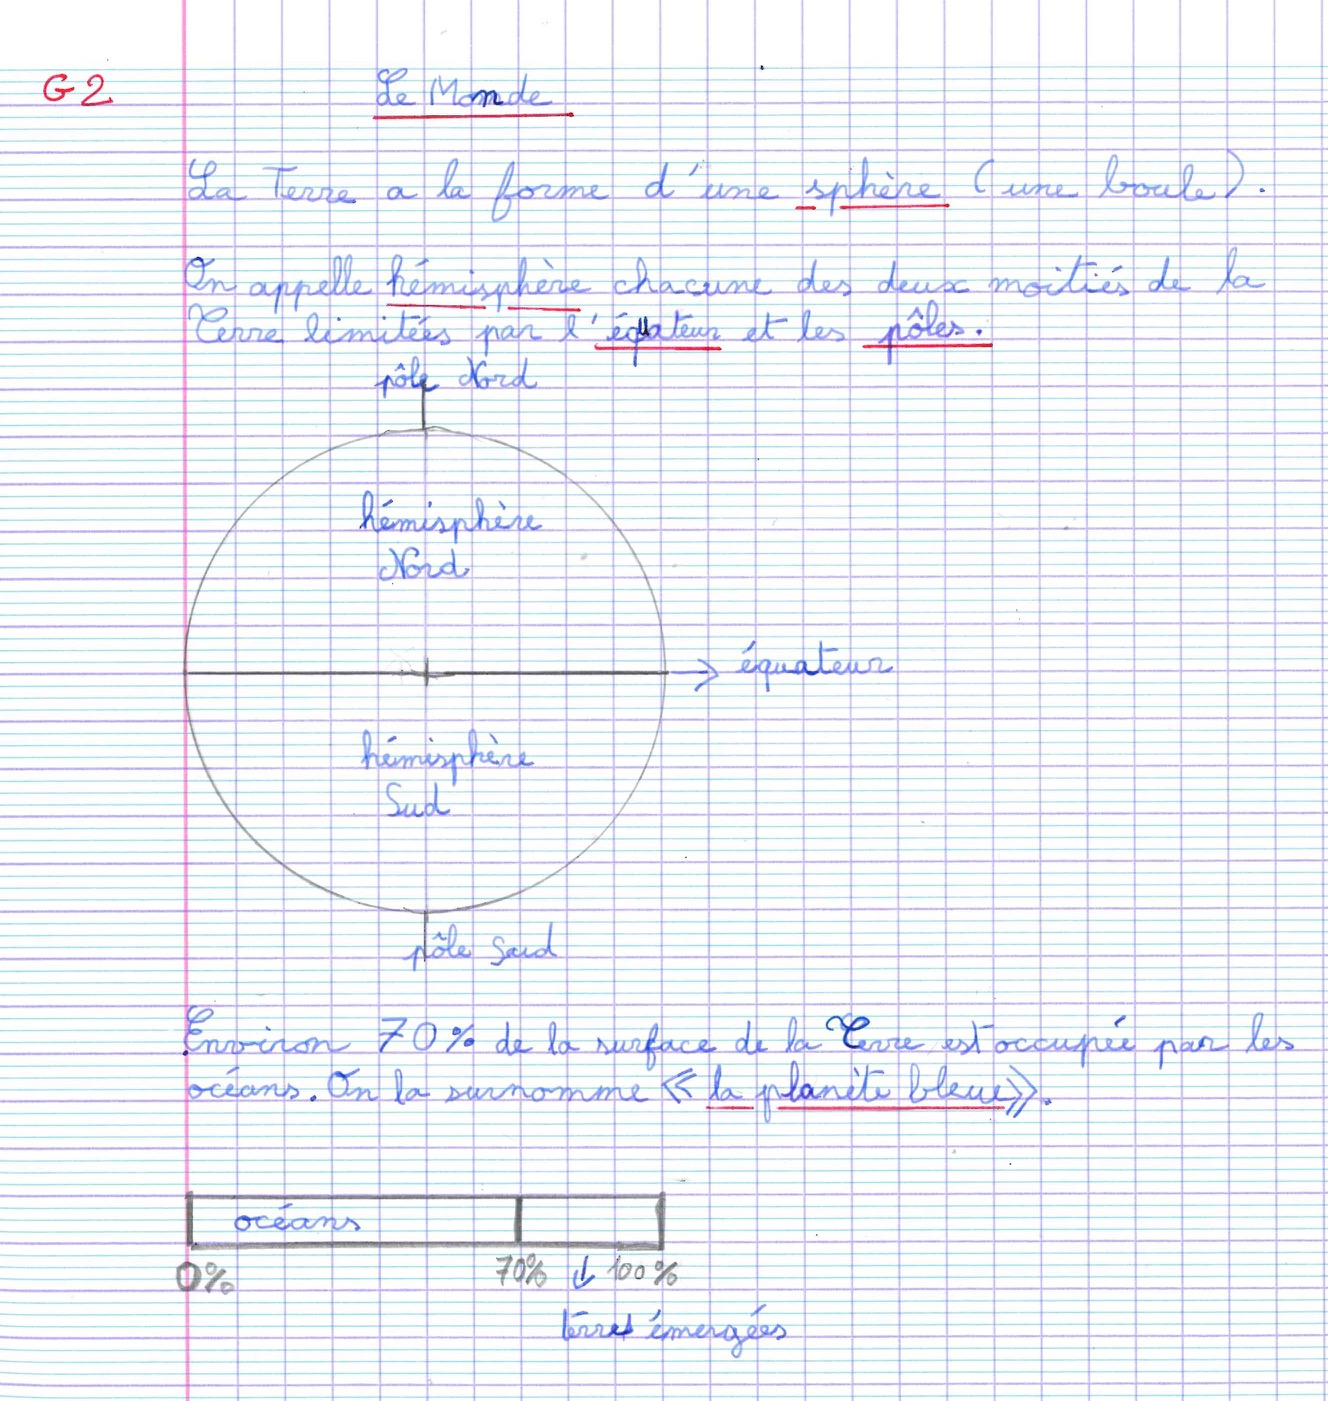 G2 Le Monde
La Terre a la forme d'une sphère (une boule).
On appelle hémisphère chacune des deux moitiés de la
Terre limitées par l'équateur et les pôles.
pôle Nord
hémisphère
Nord
équateur
hémisphère
Sud
pôle Sud
Environ 70% de la surface de la Terre est occupée par les
océans. On la surnomme « la planète bleue ».
océans
0% 70% 100%
terres émergées